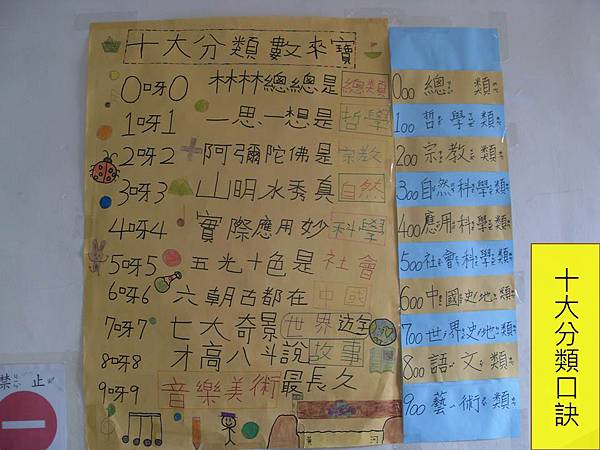 十大分類數來寶
0呀0 林林總總是總類
1呀1 一思、一想是哲學
2呀2 阿彌陀佛是宗教
3呀3 山明水秀真自然
4呀4 實際應用妙科學
5呀5 五光十色是社會
6呀6 六朝古都在中國
7呀7 七大奇景世界遊
8呀8 才高八斗說故事
9呀9 音樂美術最長久
000 總類
100 哲學類
200 宗教類
300 自然科學類
400 應用科學類
500 社會科學類
600 中國史地類
700 世界史地類
800 語文類
900 藝術類
禁止
十大分類口訣